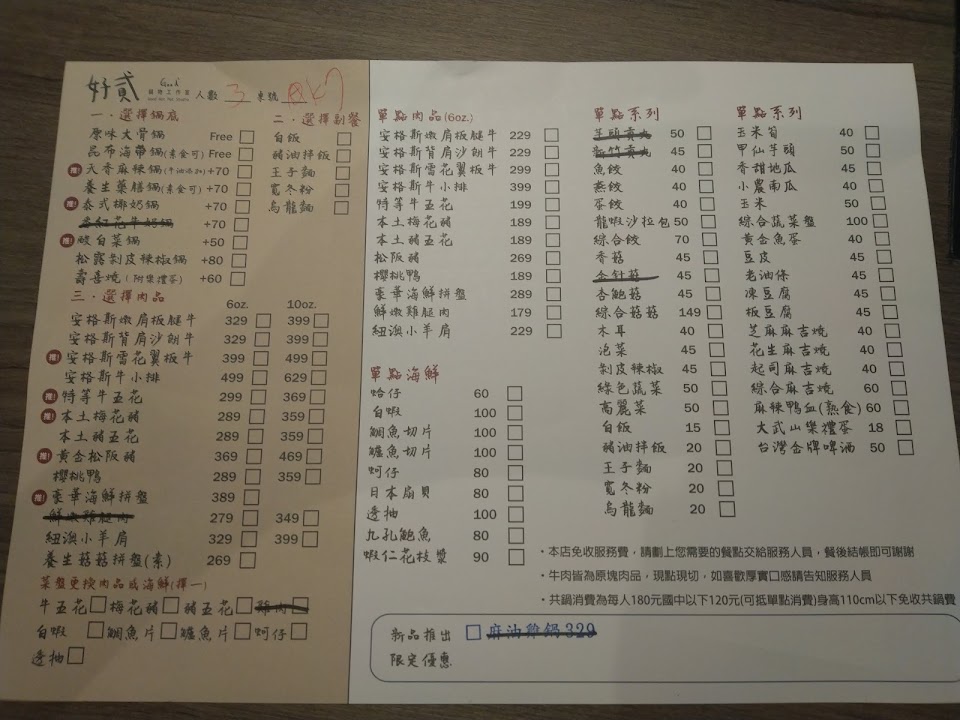 好貳 Good 鍋物工作室 人數 3 桌號
一．選擇鍋底
原味大骨鍋 Free
昆布海帶鍋(素食可) Free
推! 天香麻辣鍋(牛油添加) +70
養生藥膳鍋(素食可) +70
推! 泰式椰奶鍋 +70
紅花牛奶鍋 +70
推! 酸白菜鍋 +50
松露剝皮辣椒鍋 +80
壽喜燒(附樂禮蛋) +60
二．選擇副餐
白飯
豬油拌飯
王子麵
寬冬粉
烏龍麵
三．選擇肉品 6oz. 10oz.
安格斯嫩肩板腱牛 329 399
安格斯背肩沙朗牛 329 399
推! 安格斯雪花翼板牛 399 499
安格斯牛小排 499 629
推! 特等牛五花 299 369
推! 本土梅花豬 289 359
本土豬五花 289 359
推! 黃金松阪豬 369 469
櫻桃鴨 289 359
推! 豪華海鮮拼盤 389
鮮嫩雞腿肉 279 349
紐澳小羊肩 329 399
養生菇菇拼盤(素) 269
菜盤更換肉品或海鮮(擇一)
牛五花 梅花豬 豬五花 雞肉
白蝦 鯛魚片 鱸魚片 蚵仔
透抽
單點肉品(6oz.)
安格斯嫩肩板腱牛 229
安格斯背肩沙朗牛 229
安格斯雪花翼板牛 299
安格斯牛小排 399
特等牛五花 199
本土梅花豬 189
本土豬五花 189
松阪豬 269
櫻桃鴨 189
豪華海鮮拼盤 289
鮮嫩雞腿肉 179
紐澳小羊肩 229
單點海鮮
蛤仔 60
白蝦 100
鯛魚切片 100
鱸魚切片 100
蚵仔 80
日本扇貝 80
透抽 100
九孔鮑魚 80
蝦仁花枝漿 90
單點系列
芋頭貢丸 50
新竹貢丸 45
魚餃 40
燕餃 40
蛋餃 40
龍蝦沙拉包 50
綜合餃 70
香菇 45
金針菇 45
杏鮑菇 45
綜合菇菇 149
木耳 40
泡菜 45
剝皮辣椒 45
綠色蔬菜 50
高麗菜 50
白飯 15
豬油拌飯 20
王子麵 20
寬冬粉 20
烏龍麵 20
單點系列
玉米筍 40
甲仙芋頭 50
香甜地瓜 45
小農南瓜 40
玉米 50
綜合蔬菜盤 100
黃金魚蛋 40
豆皮 45
老油條 45
凍豆腐 45
板豆腐 45
芝麻麻吉燒 40
花生麻吉燒 40
起司麻吉燒 40
綜合麻吉燒 60
麻辣鴨血(熟食) 60
大武山樂禮蛋 18
台灣金牌啤酒 50
・本店免收服務費，請劃上您需要的餐點交給服務人員，餐後結帳即可謝謝
・牛肉皆為原塊肉品，現點現切，如喜歡厚實口感請告知服務人員
・共鍋消費為每人180元國中以下120元(可抵單點消費)身高110cm以下免收共鍋費
新品推出 麻油雞鍋 329
限定優惠